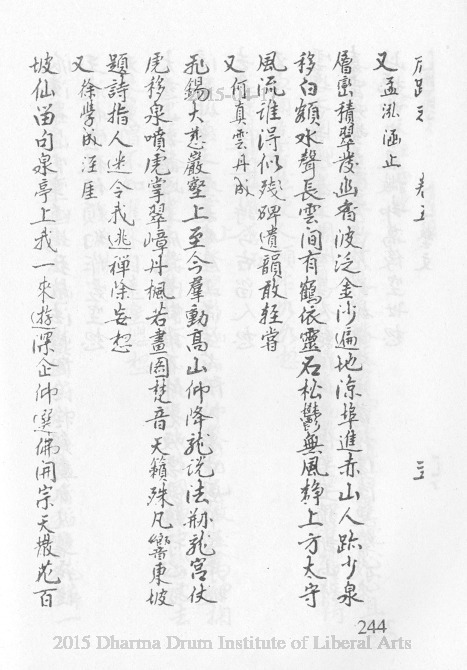 卷五
又孟泓涵止
層巒積翠發幽香波泛金沙遍地涼埠進赤山人跡少泉
移白額水聲長雲間有鶴依靈石松鬱無風靜上方太守
風流誰得似殘碑遺韻敢輕嘗
又何真雲丹成
飛錫大慈巖壑上至今羣動高山仰降龍說法勅龍宮伏
虎移泉噴虎掌翠嶂丹楓若畫圖梵音天籟殊凡響東坡
題詩指人迷令我逃禪除妄想
又徐學成涯厓
坡仙留句泉亭上我一來遊深企仰選佛開宗天散花百
244
2015 Dharma Drum Institute of Liberal Arts